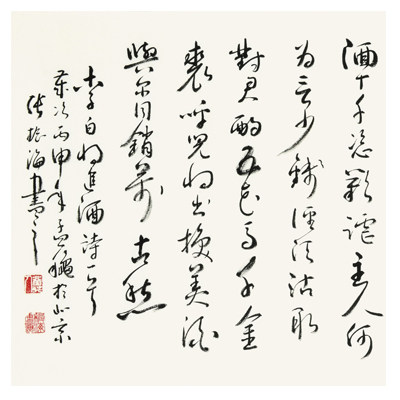 酒十千恣歡謔主人何
为言少錢徑須沽取
對君酌五花马千金
裘呼兒将出換美酒
與尔同銷萬古愁
李白将進酒詩
歲次丙申年孟龝於北京
張振海書